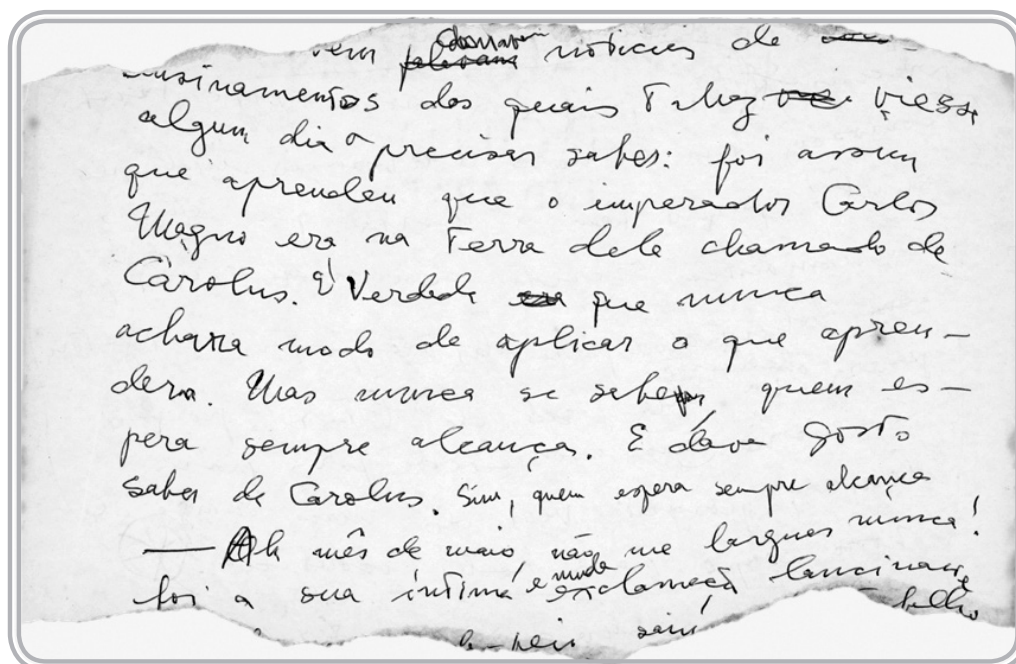 vem notícias de
ensinamentos dos quais Talvez viesse
algum dia a precisar saber: foi assim
que aprendeu que o imperador Carlos
Magno era na Terra dele chamado de
Carolus. É Verdade que nunca
achara modo de aplicar o que apren-
dera. Mas nunca se sabe, quem es-
pera sempre alcança. E dava gosto
saber de Carolus. Sim, quem espera sempre alcança
— Ah mês de maio, não me largues nunca!
foi a sua íntima e muda exclamação